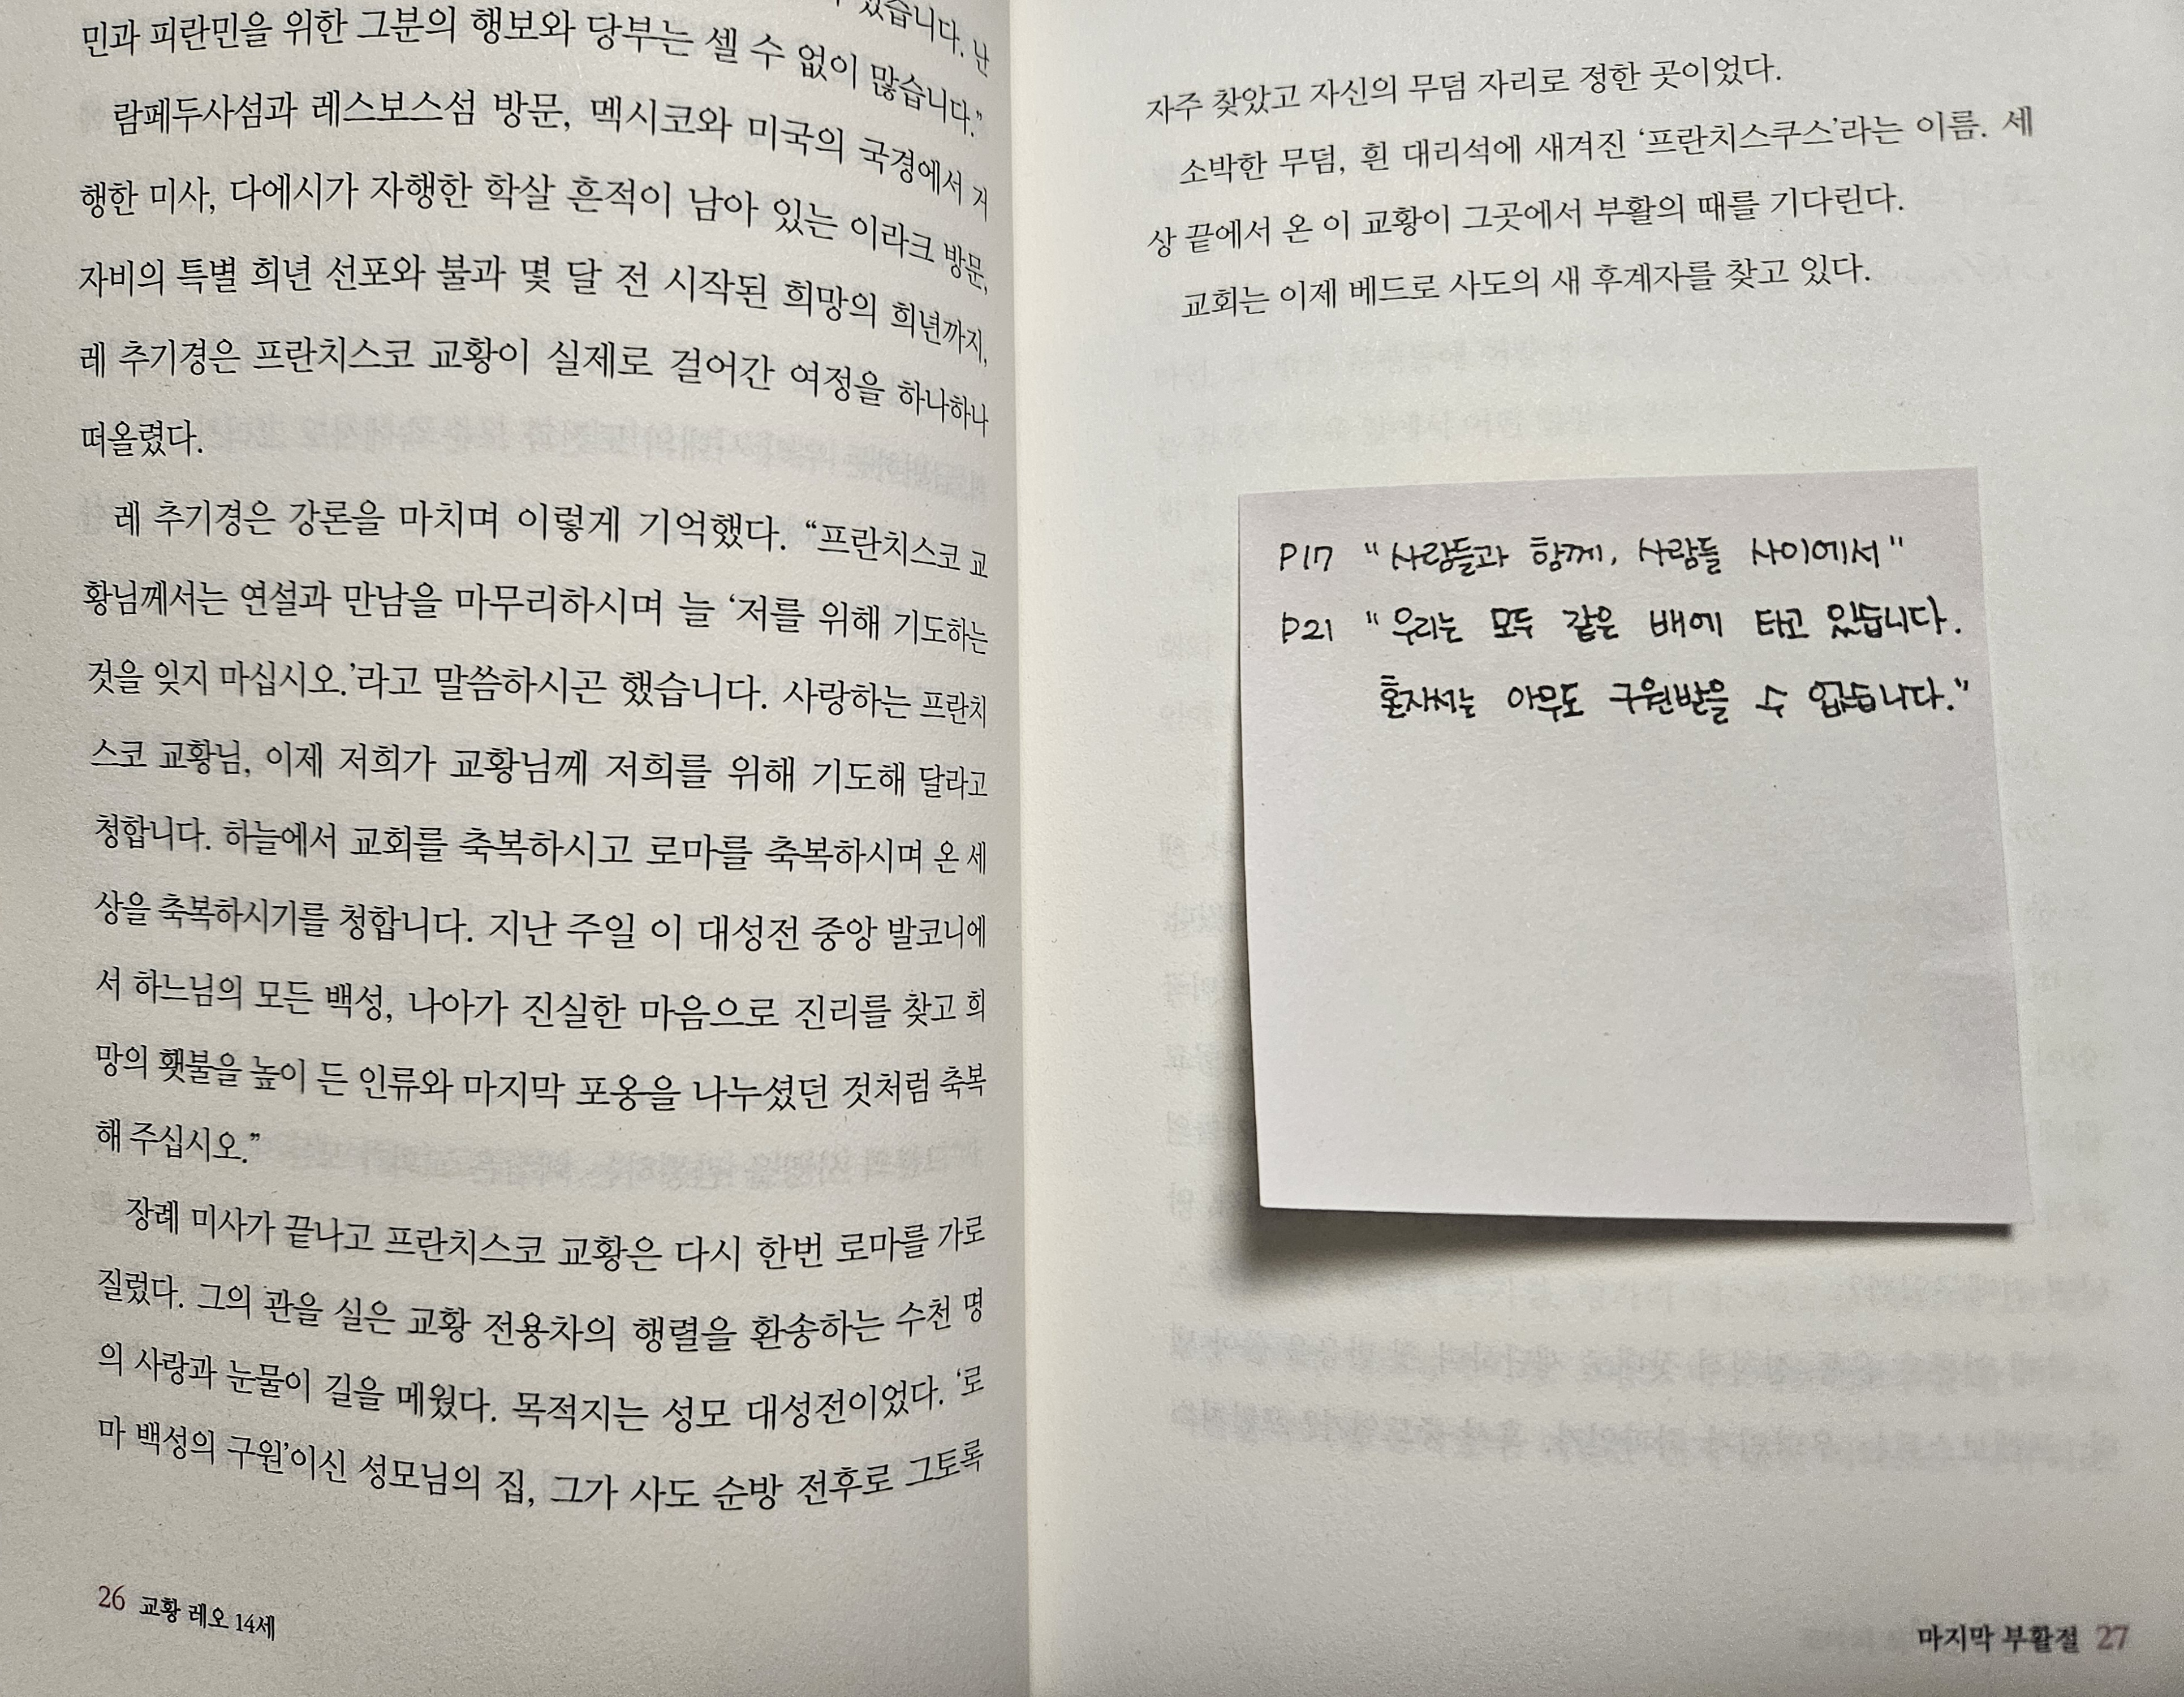 있습니다. 난
민과 피란민을 위한 그분의 행보와 당부는 셀 수 없이 많습니다.”
람페두사섬과 레스보스섬 방문, 멕시코와 미국의 국경에서 거
행한 미사, 다에시가 자행한 학살 흔적이 남아 있는 이라크 방문,
자비의 특별 희년 선포와 불과 몇 달 전 시작된 희망의 희년까지,
레 추기경은 프란치스코 교황이 실제로 걸어간 여정을 하나하나
떠올렸다.
레 추기경은 강론을 마치며 이렇게 기억했다. “프란치스코 교
황님께서는 연설과 만남을 마무리하시며 늘 ‘저를 위해 기도하는
것을 잊지 마십시오.’라고 말씀하시곤 했습니다. 사랑하는 프란치
스코 교황님, 이제 저희가 교황님께 저희를 위해 기도해 달라고
청합니다. 하늘에서 교회를 축복하시고 로마를 축복하시며 온 세
상을 축복하시기를 청합니다. 지난 주일 이 대성전 중앙 발코니에
서 하느님의 모든 백성, 나아가 진실한 마음으로 진리를 찾고 희
망의 횃불을 높이 든 인류와 마지막 포옹을 나누셨던 것처럼 축복
해 주십시오.”
장례 미사가 끝나고 프란치스코 교황은 다시 한번 로마를 가로
질렀다. 그의 관을 실은 교황 전용차의 행렬을 환송하는 수천 명
의 사랑과 눈물이 길을 메웠다. 목적지는 성모 대성전이었다. ‘로
마 백성의 구원’이신 성모님의 집, 그가 사도 순방 전후로 그토록
26 교황 레오 14세
자주 찾았고 자신의 무덤 자리로 정한 곳이었다.
소박한 무덤, 흰 대리석에 새겨진 ‘프란치스쿠스’라는 이름. 세
상 끝에서 온 이 교황이 그곳에서 부활의 때를 기다린다.
교회는 이제 베드로 사도의 새 후계자를 찾고 있다.
P17 "사람들과 함께, 사람들 사이에서"
P21 "우리는 모두 같은 배에 타고 있습니다.
혼자서는 아무도 구원받을 수 없습니다."
마지막 부활절 27